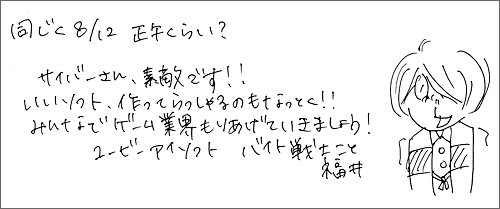 同じく 8/12 正午くらい？
サイバーさん、素敵です！！
いいソフト、作ってらっしゃるのもなっとく！！
みんなでゲーム業界もりあげていきましょう！
ユービーアイソフト バイト戦士こと
福井